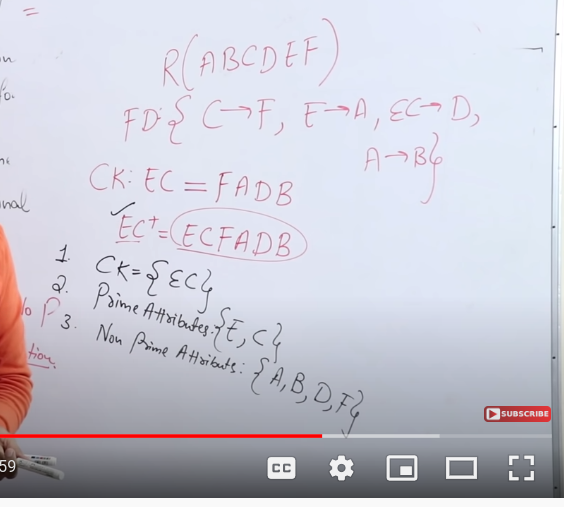 =
R(ABCDEF)
FD:{ C→F, E→A, EC→D,
A→B}
CK: EC = FADB
✓EC⁺= ECFADB
1. CK={EC}
2. Prime Attributes:{E,C}
3. Non Prime Attributs: {A,B,D,F}
nal
tion.
SUBSCRIBE
59
CC